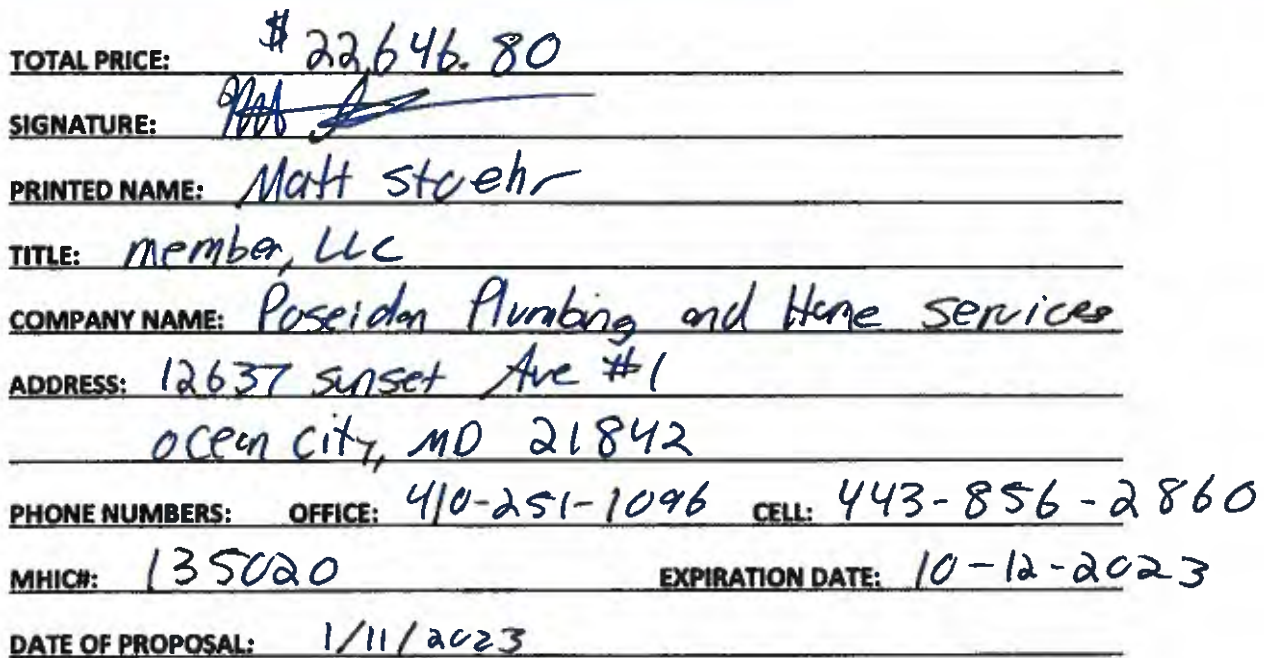 TOTAL PRICE: $22,646.80
SIGNATURE:
PRINTED NAME: Matt Stoehr
TITLE: member, LLC
COMPANY NAME: Poseidon Plumbing and Home Services
ADDRESS: 12637 sunset Ave #1
ocean city, MD 21842
PHONE NUMBERS: OFFICE: 410-251-1096 CELL: 443-856-2860
MHIC#: 135020 EXPIRATION DATE: 10-12-2023
DATE OF PROPOSAL: 1/11/2023